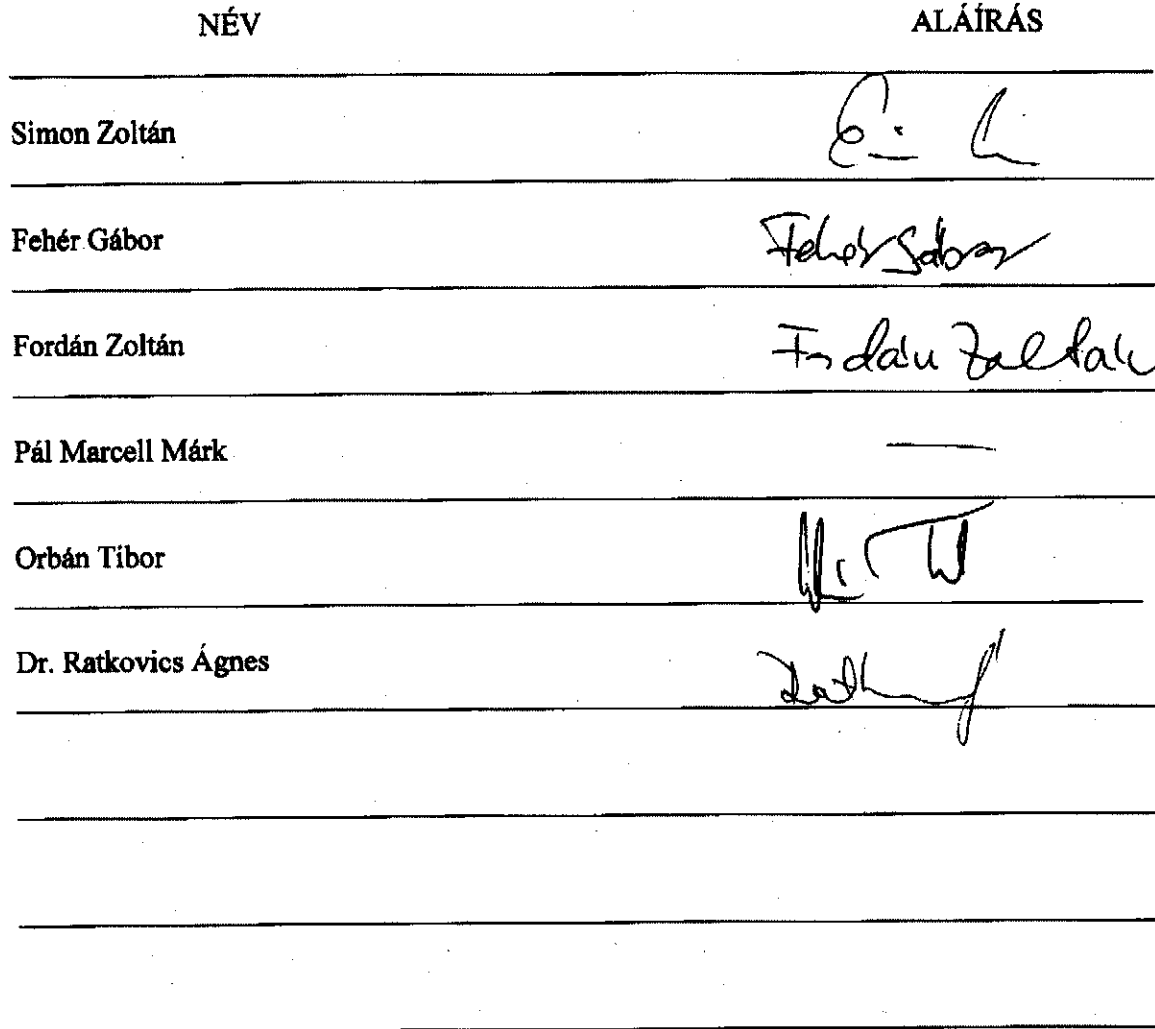 NÉV ALÁÍRÁS
Simon Zoltán
Fehér Gábor Fehér Gábor
Fordán Zoltán Fordán Zoltán
Pál Marcell Márk —
Orbán Tibor
Dr. Ratkovics Ágnes